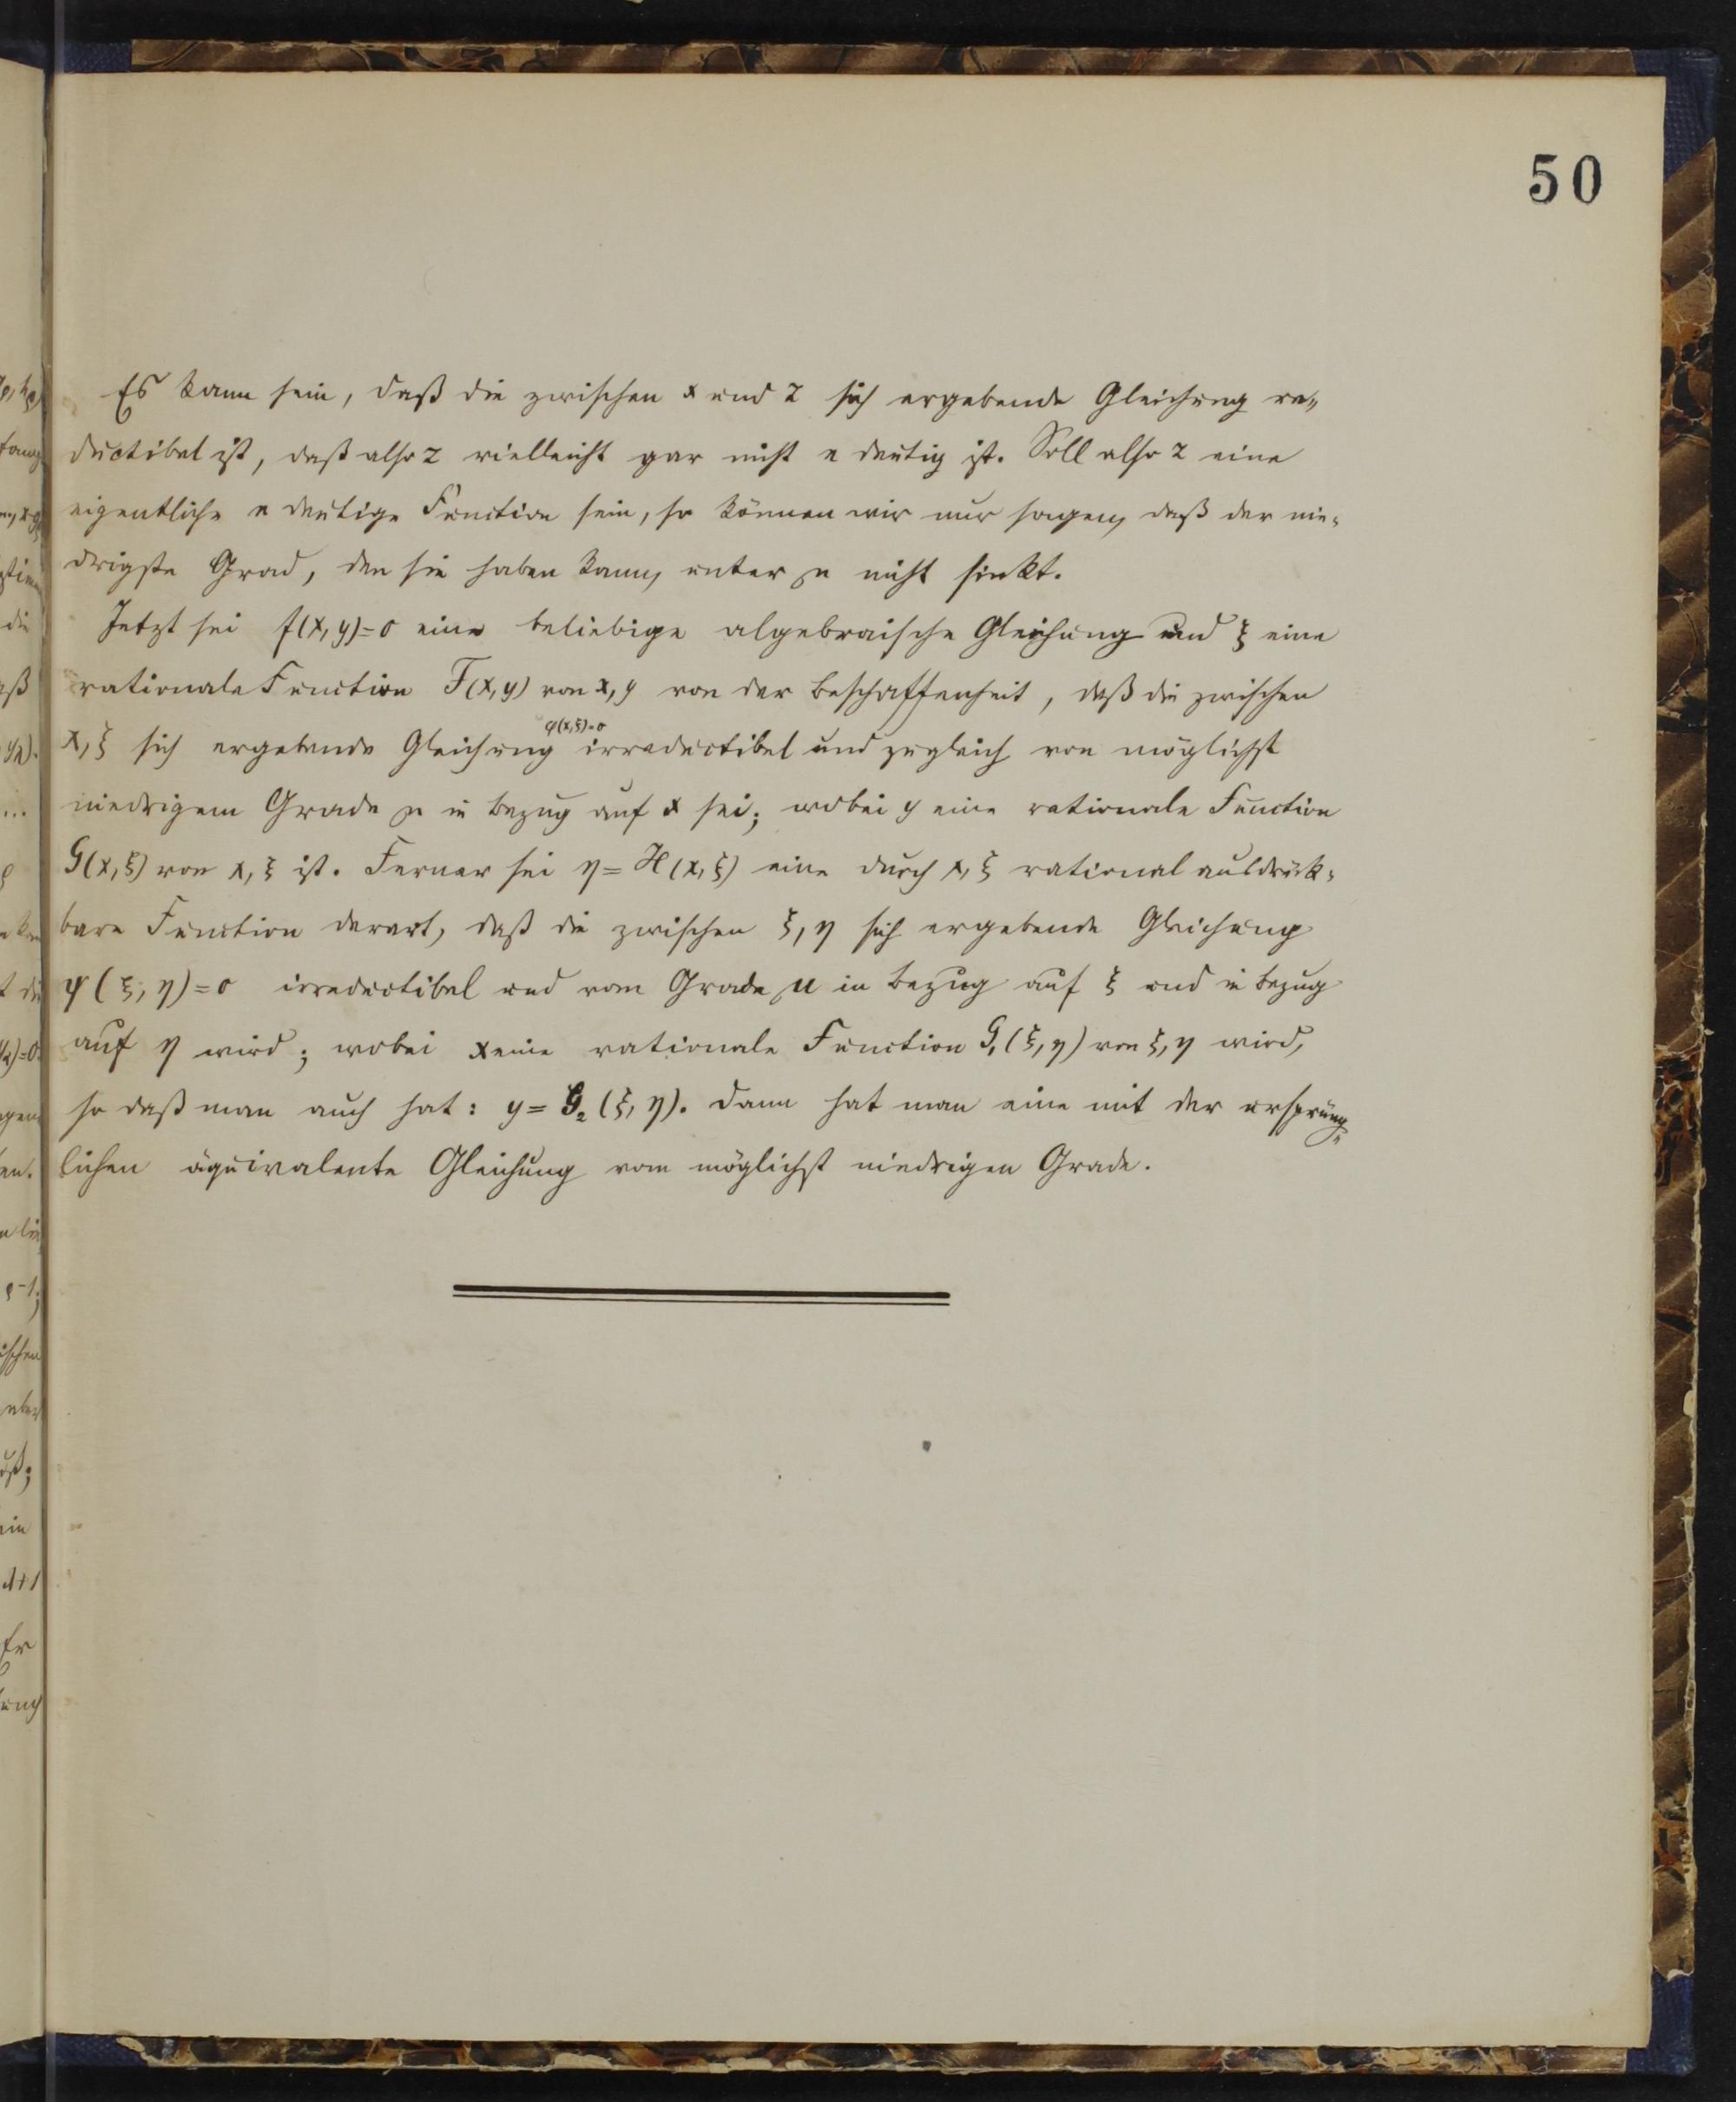 50
Es kann sein, daß die zwischen x und z sich ergebende Gleichung re-
ductibel ist, daß also z vielleicht gar nicht n deutig ist. Soll also z eine
eigentliche n deutige Function sein, so können wir nur sagen, daß der nie-
drigste Grad, den sie haben kann, unter μ nicht sinkt.
Jetzt sei f(x, y)=0 eine beliebige algebraische Gleichung und ξ eine
rationale Function F(x, y) von x, y von der Beschaffenheit, daß die zwischen
φ(x,ξ)=0
x, ξ sich ergebende Gleichung irreductibel und zugleich von möglichst
niedrigem Grade μ in Bezug auf x sei; wobei y eine rationale Function
G(x, ξ) von x, ξ ist. Ferner sei η = H(x, ξ) eine durch x, ξ rational ausdrück-
bare Function derart, daß die zwischen ξ, η sich ergebende Gleichung
ψ(ξ, η)=0 irreductibel und vom Grade μ in Bezug auf ξ und in Bezug
auf η wird; wobei x eine rationale Function G₁(ξ, η) von ξ, η wird,
so daß man auch hat: y = G₂(ξ, η). Dann hat man eine mit der ursprüng-
lichen äquivalente Gleichung vom möglichst niedrigen Grade.